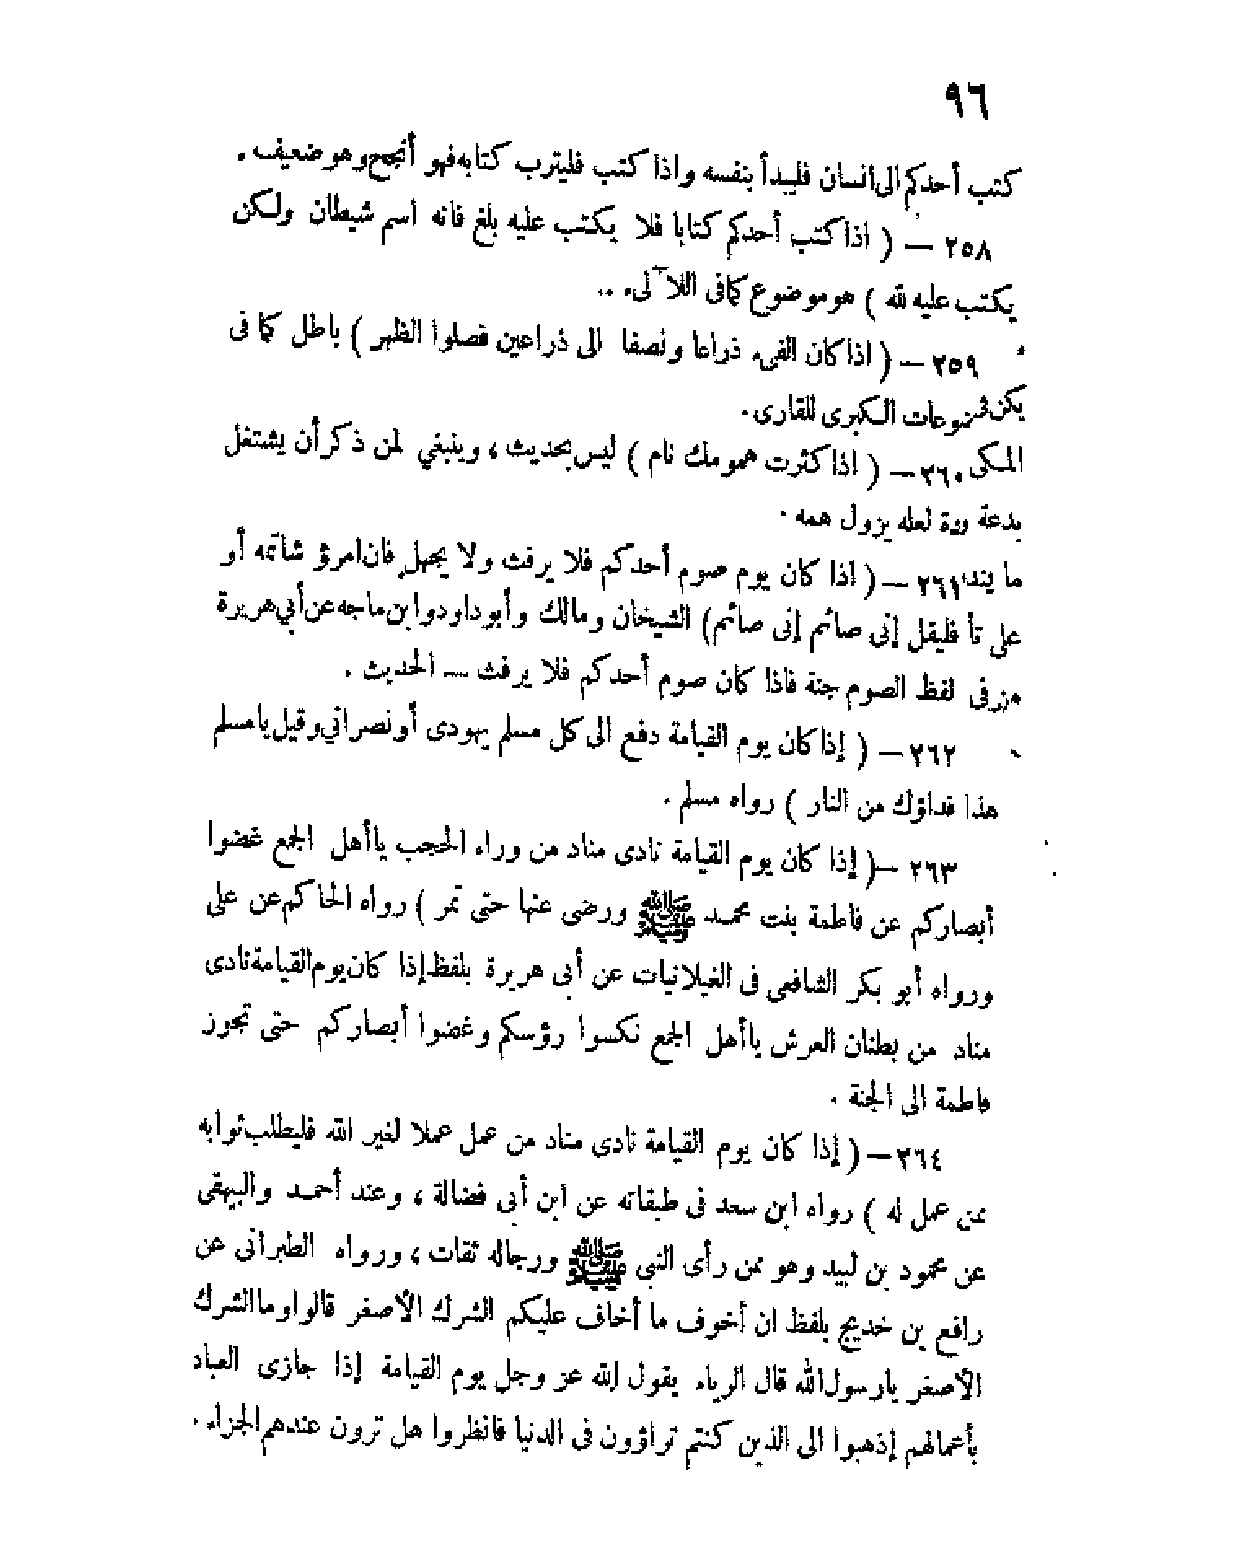 ٩٦
كتب أحدكم الى انسان فليبدأ بنفسه واذا كتب فليترب كتابه فهو أنجح وهو ضعيف .
٢٥٨ — ( اذا كتب أحدكم كتابا فلا يكتب عليه بلغ فانه اسم شيطان ولكن
يكتب عليه لله ) هو موضوع كما فى اللآلىء ..
٢٥٩ — ( اذا كان الفىء ذراعا ونصفا الى ذراعين فصلوا الظهر ) باطل كما فى
الكبرى للقارى .
٣٦٠ — ( اذا كثرت همومك نام ) ليس بحديث ، وينبغي لمن ذكر أن يشتغل
لعله يزول همه .
٢٦١ — ( اذا كان يوم صوم أحدكم فلا يرفث ولا يجهل فان امرؤ شاتمه أو
فليقل إنى صائم إنى صائم ) الشيخان ومالك وأبو داود وابن ماجه عن أبي هريرة
لفظ الصوم جنة فاذا كان صوم أحدكم فلا يرفث — الحديث .
٢٦٢ — ( إذا كان يوم القيامة دفع الى كل مسلم يهودى أو نصراني وقيل يا مسلم
هذا فداؤك من النار ) رواه مسلم .
٢٦٣ — ( إذا كان يوم القيامة نادى مناد من وراء الحجب ياأهل الجمع غضوا
أبصاركم عن فاطمة بنت محمد ﷺ ورضى عنها حتى تمر ) رواه الحاكم عن على
ورواه أبو بكر الشافعى فى الغيلانيات عن أبى هريرة بلفظ إذا كان يوم القيامة نادى
مناد من بطنان العرش ياأهل الجمع نكسوا رؤسكم وغضوا أبصاركم حتى تجوز
فاطمة الى الجنة .
٢٦٤ — ( إذا كان يوم القيامة نادى مناد من عمل عملا لغير الله فليطلب ثوابه
ممن عمل له ) رواه ابن سعد فى طبقاته عن ابن أبى فضالة ، وعند أحمد والبيهقى
عن محمود بن لبيد وهو ممن رأى النبى ﷺ ورجاله ثقات ، ورواه الطبرانى عن
رافع بن خديج بلفظ ان أخوف ما أخاف عليكم الشرك الأصغر قالوا وما الشرك
الأصغر يا رسول الله قال الرياء يقول الله عز وجل يوم القيامة إذا جازى العباد
بأعمالهم إذهبوا الى الذين كنتم تراؤون فى الدنيا فانظروا هل ترون عندهم الجزاء .